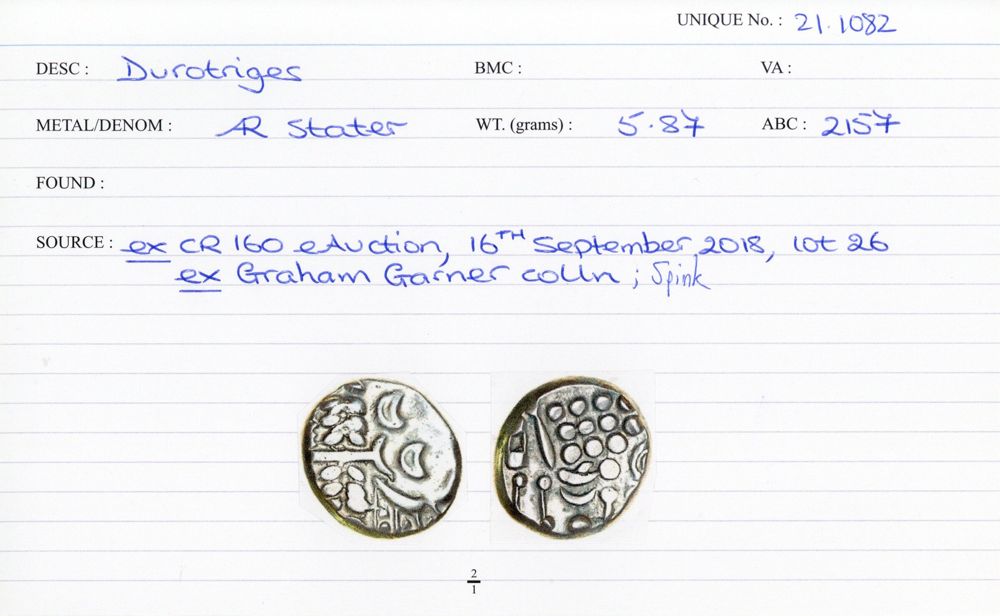 UNIQUE No. : 21.1082
DESC : Durotriges BMC : VA :
METAL/DENOM : AR Stater WT. (grams) : 5.87 ABC : 2157
FOUND :
SOURCE : ex CR 160 eAuction, 16TH September 2018, lot 26
ex Graham Garner colln ; Spink
2
1